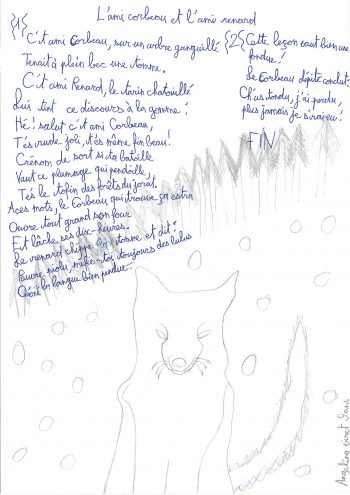 L'ami corbeau et l'ami renard
{1}
C't ami Corbeau, sur un arbre ganguillé
Tenait à plein bec une tomme.
C't ami Renard, le tarin chatouillé
Lui tint ce discours à la gomme:
Hé! salut c't ami Corbeau,
T'es rude joli, t'es même fin beau!
Crénom de sort si ta batoille
Vaut ce plumage qui pendoille,
T'es le tofin des forêts du Jorat.
A ces mots, le Corbeau qui trouve ça estra
Ouvre tout grand son four
Et lâche ses dix-heures.
Le renard chippe la tomme et dit:
Pauvre niolu, méfie-toi toujours des lulus
Qu'ont la langue bien pendue.
{2} Cette leçon vaut bien une
fondue!
Le Corbeau dépité conclut:
Ch'us tondu, j'ai perdu,
plus jamais je s'rai eu!
FIN
Angelina 9 ans